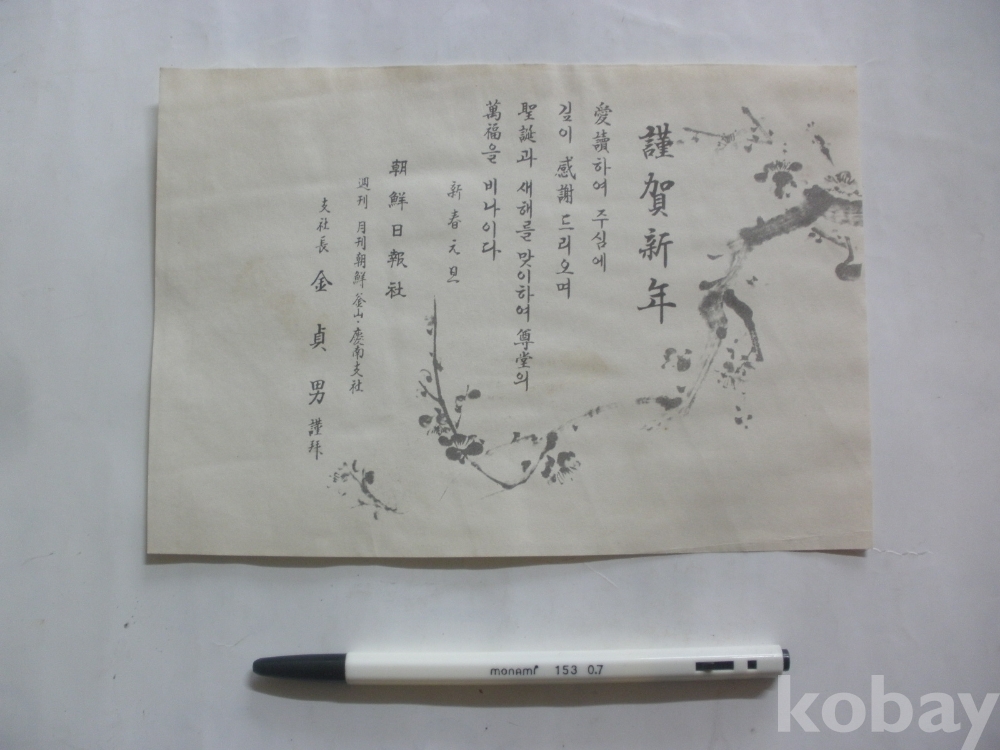 謹賀新年
愛讀하여 주심에
깊이 感謝드리오며
聖誕과 새해를 맞이하여 尊堂의
萬福을 비나이다
新春元旦
朝鮮日報社
週刊 月刊朝鮮 釜山·慶南支社
支社長 金貞男 謹拜
monami 153 0.7
kobay